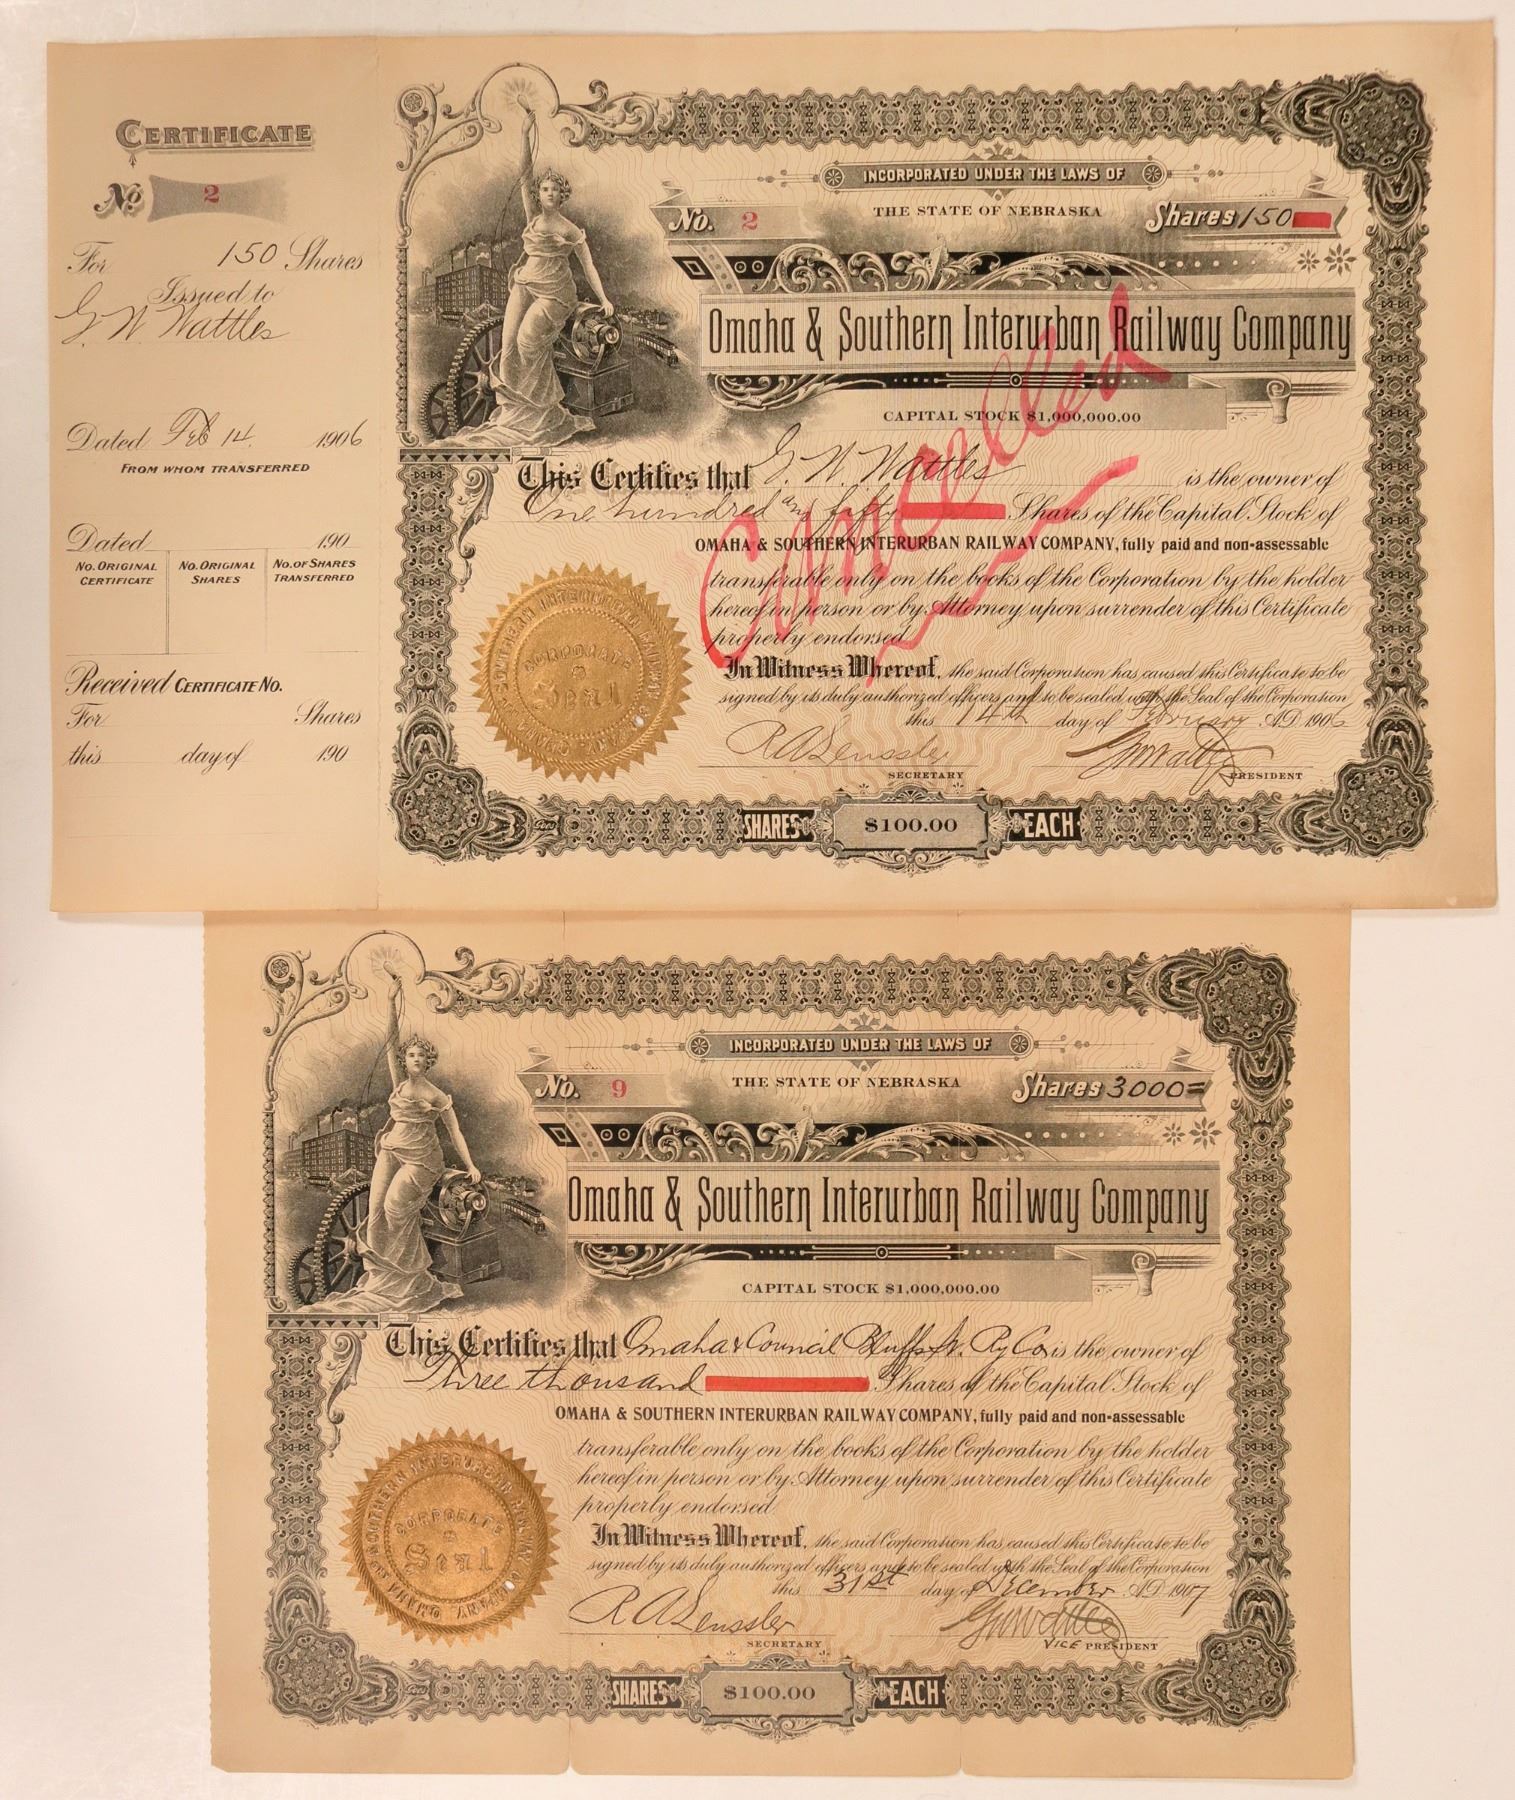 CERTIFICATE
No 2
For 150 Shares
Issued to
G. W. Wattles
Dated Feb 14. 1906
FROM WHOM TRANSFERRED
Dated 190
No. ORIGINAL CERTIFICATE No. ORIGINAL SHARES No. OF SHARES TRANSFERRED
Received CERTIFICATE No.
For Shares
this day of 190
INCORPORATED UNDER THE LAWS OF
No. 2 THE STATE OF NEBRASKA Shares 150
Omaha & Southern Interurban Railway Company
CAPITAL STOCK $1,000,000.00
Cancelled
This Certifies that G. W. Wattles is the owner of
One hundred and fifty Shares of the Capital Stock of
OMAHA & SOUTHERN INTERURBAN RAILWAY COMPANY, fully paid and non-assessable
transferable only on the books of the Corporation by the holder
hereof in person or by Attorney upon surrender of this Certificate
properly endorsed.
In Witness Whereof, the said Corporation has caused this Certificate to be
signed by its duly authorized officers and to be sealed with the Seal of the Corporation
this 14th day of February A.D. 1906
R A Leussler GW Wattles
SECRETARY PRESIDENT
OMAHA & SOUTHERN INTERURBAN RAILWAY COMPANY
CORPORATE
Seal
SHARES $100.00 EACH
INCORPORATED UNDER THE LAWS OF
No. 9 THE STATE OF NEBRASKA Shares 3000=
Omaha & Southern Interurban Railway Company
CAPITAL STOCK $1,000,000.00
This Certifies that Omaha & Council Bluffs St. Ry Co is the owner of
Three thousand Shares of the Capital Stock of
OMAHA & SOUTHERN INTERURBAN RAILWAY COMPANY, fully paid and non-assessable
transferable only on the books of the Corporation by the holder
hereof in person or by Attorney upon surrender of this Certificate
properly endorsed.
In Witness Whereof, the said Corporation has caused this Certificate to be
signed by its duly authorized officers and to be sealed with the Seal of the Corporation
this 31st day of December A.D. 1907
R A Leussler GW Wattles
SECRETARY VICE PRESIDENT
OMAHA & SOUTHERN INTERURBAN RAILWAY COMPANY
CORPORATE
Seal
SHARES $100.00 EACH